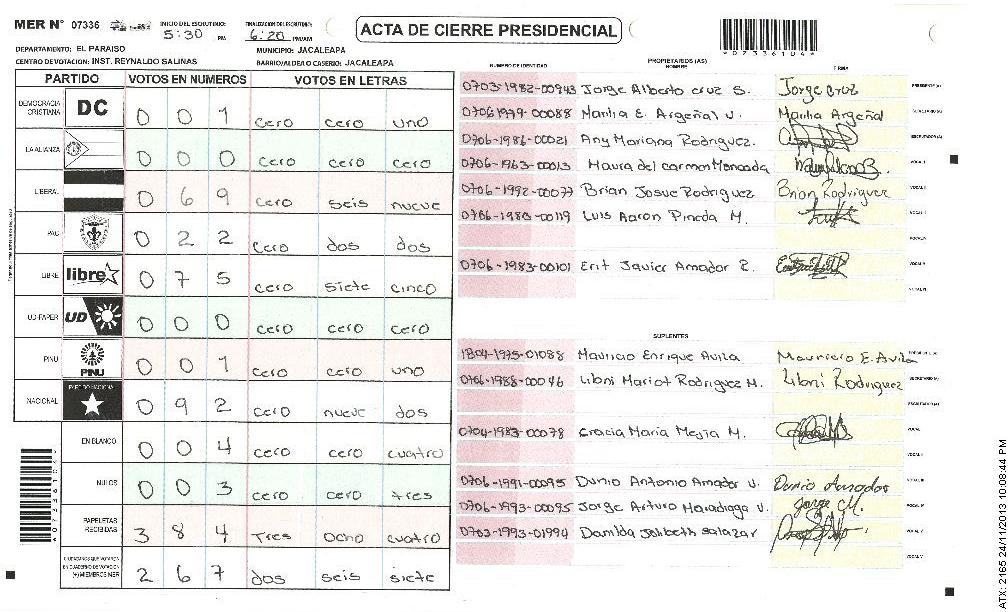 MER N° 07336 INICIO DEL ESCRUTINIO: 5:30 PM FINALIZACION DEL ESCRUTINIO: 6:20 PM/AM
ACTA DE CIERRE PRESIDENCIAL
*07336104*
DEPARTAMENTO: EL PARAISO MUNICIPIO: JACALEAPA
CENTRO DE VOTACION: INST. REYNALDO SALINAS BARRIO/ALDEA O CASERIO: JACALEAPA
PARTIDO VOTOS EN NUMEROS VOTOS EN LETRAS
DEMOCRACIA CRISTIANA DC 0 0 1 cero cero uno
LA ALIANZA 0 0 0 cero cero cero
LIBERAL 0 6 9 cero seis nueve
PAC 0 2 2 cero dos dos
LIBRE libre 0 7 5 cero siete cinco
UD-FAPER UD 0 0 0 cero cero cero
PINU PINU 0 0 1 cero cero uno
NACIONAL PARTIDO NACIONAL 0 9 2 cero nueve dos
EN BLANCO 0 0 4 cero cero cuatro
NULOS 0 0 3 cero cero tres
PAPELETAS RECIBIDAS 3 8 4 Tres ocho cuatro
CIUDADANOS QUE VOTARON EN CUADERNO DE VOTACION (+) MIEMBROS MER 2 6 7 dos seis siete
NUMERO DE IDENTIDAD PROPIETARIOS (AS) NOMBRE FIRMA
0703-1982-00943 Jorge Alberto cruz S. Jorge Cruz PRESIDENTE (A)
07061979-00088 Maritia E. Argeñal V. SECRETARIO (A)
0706-1986-00021 Any Mariana Rodriguez. ESCRUTADOR (A)
0706-1963-00013 Maura del carmen Moncada VOCAL I
0706-1992-00077 Brian Josue Rodriguez Brian Rodriguez VOCAL II
0706-1980-00119 Luis Aaron Pineda M. VOCAL III
VOCAL IV
0706-1983-00101 Erit Javier Amador R. VOCAL V
VOCAL VI
SUPLENTES
1804-1975-01088 Mauricio Enrique Avila Mauricio E. Avila PRESIDENTE (A)
0706-1988-00046 Libni Mariot Rodriguez M. Libni Rodriguez SECRETARIO (A)
ESCRUTADOR (A)
0704-1983-00078 Gracia Maria Mejia M. VOCAL I
VOCAL II
0706-1991-00095 Dunio Antonio Amador V. Dunio Amador VOCAL III
0706-1993-00095 Jorge Arturo Maradiaga V. Jorge M. VOCAL IV
0703-1993-01994 Danilda Jolibeth Salazar VOCAL V
VOCAL VI
ATX: 2165 24/11/2013 10:08:44 PM